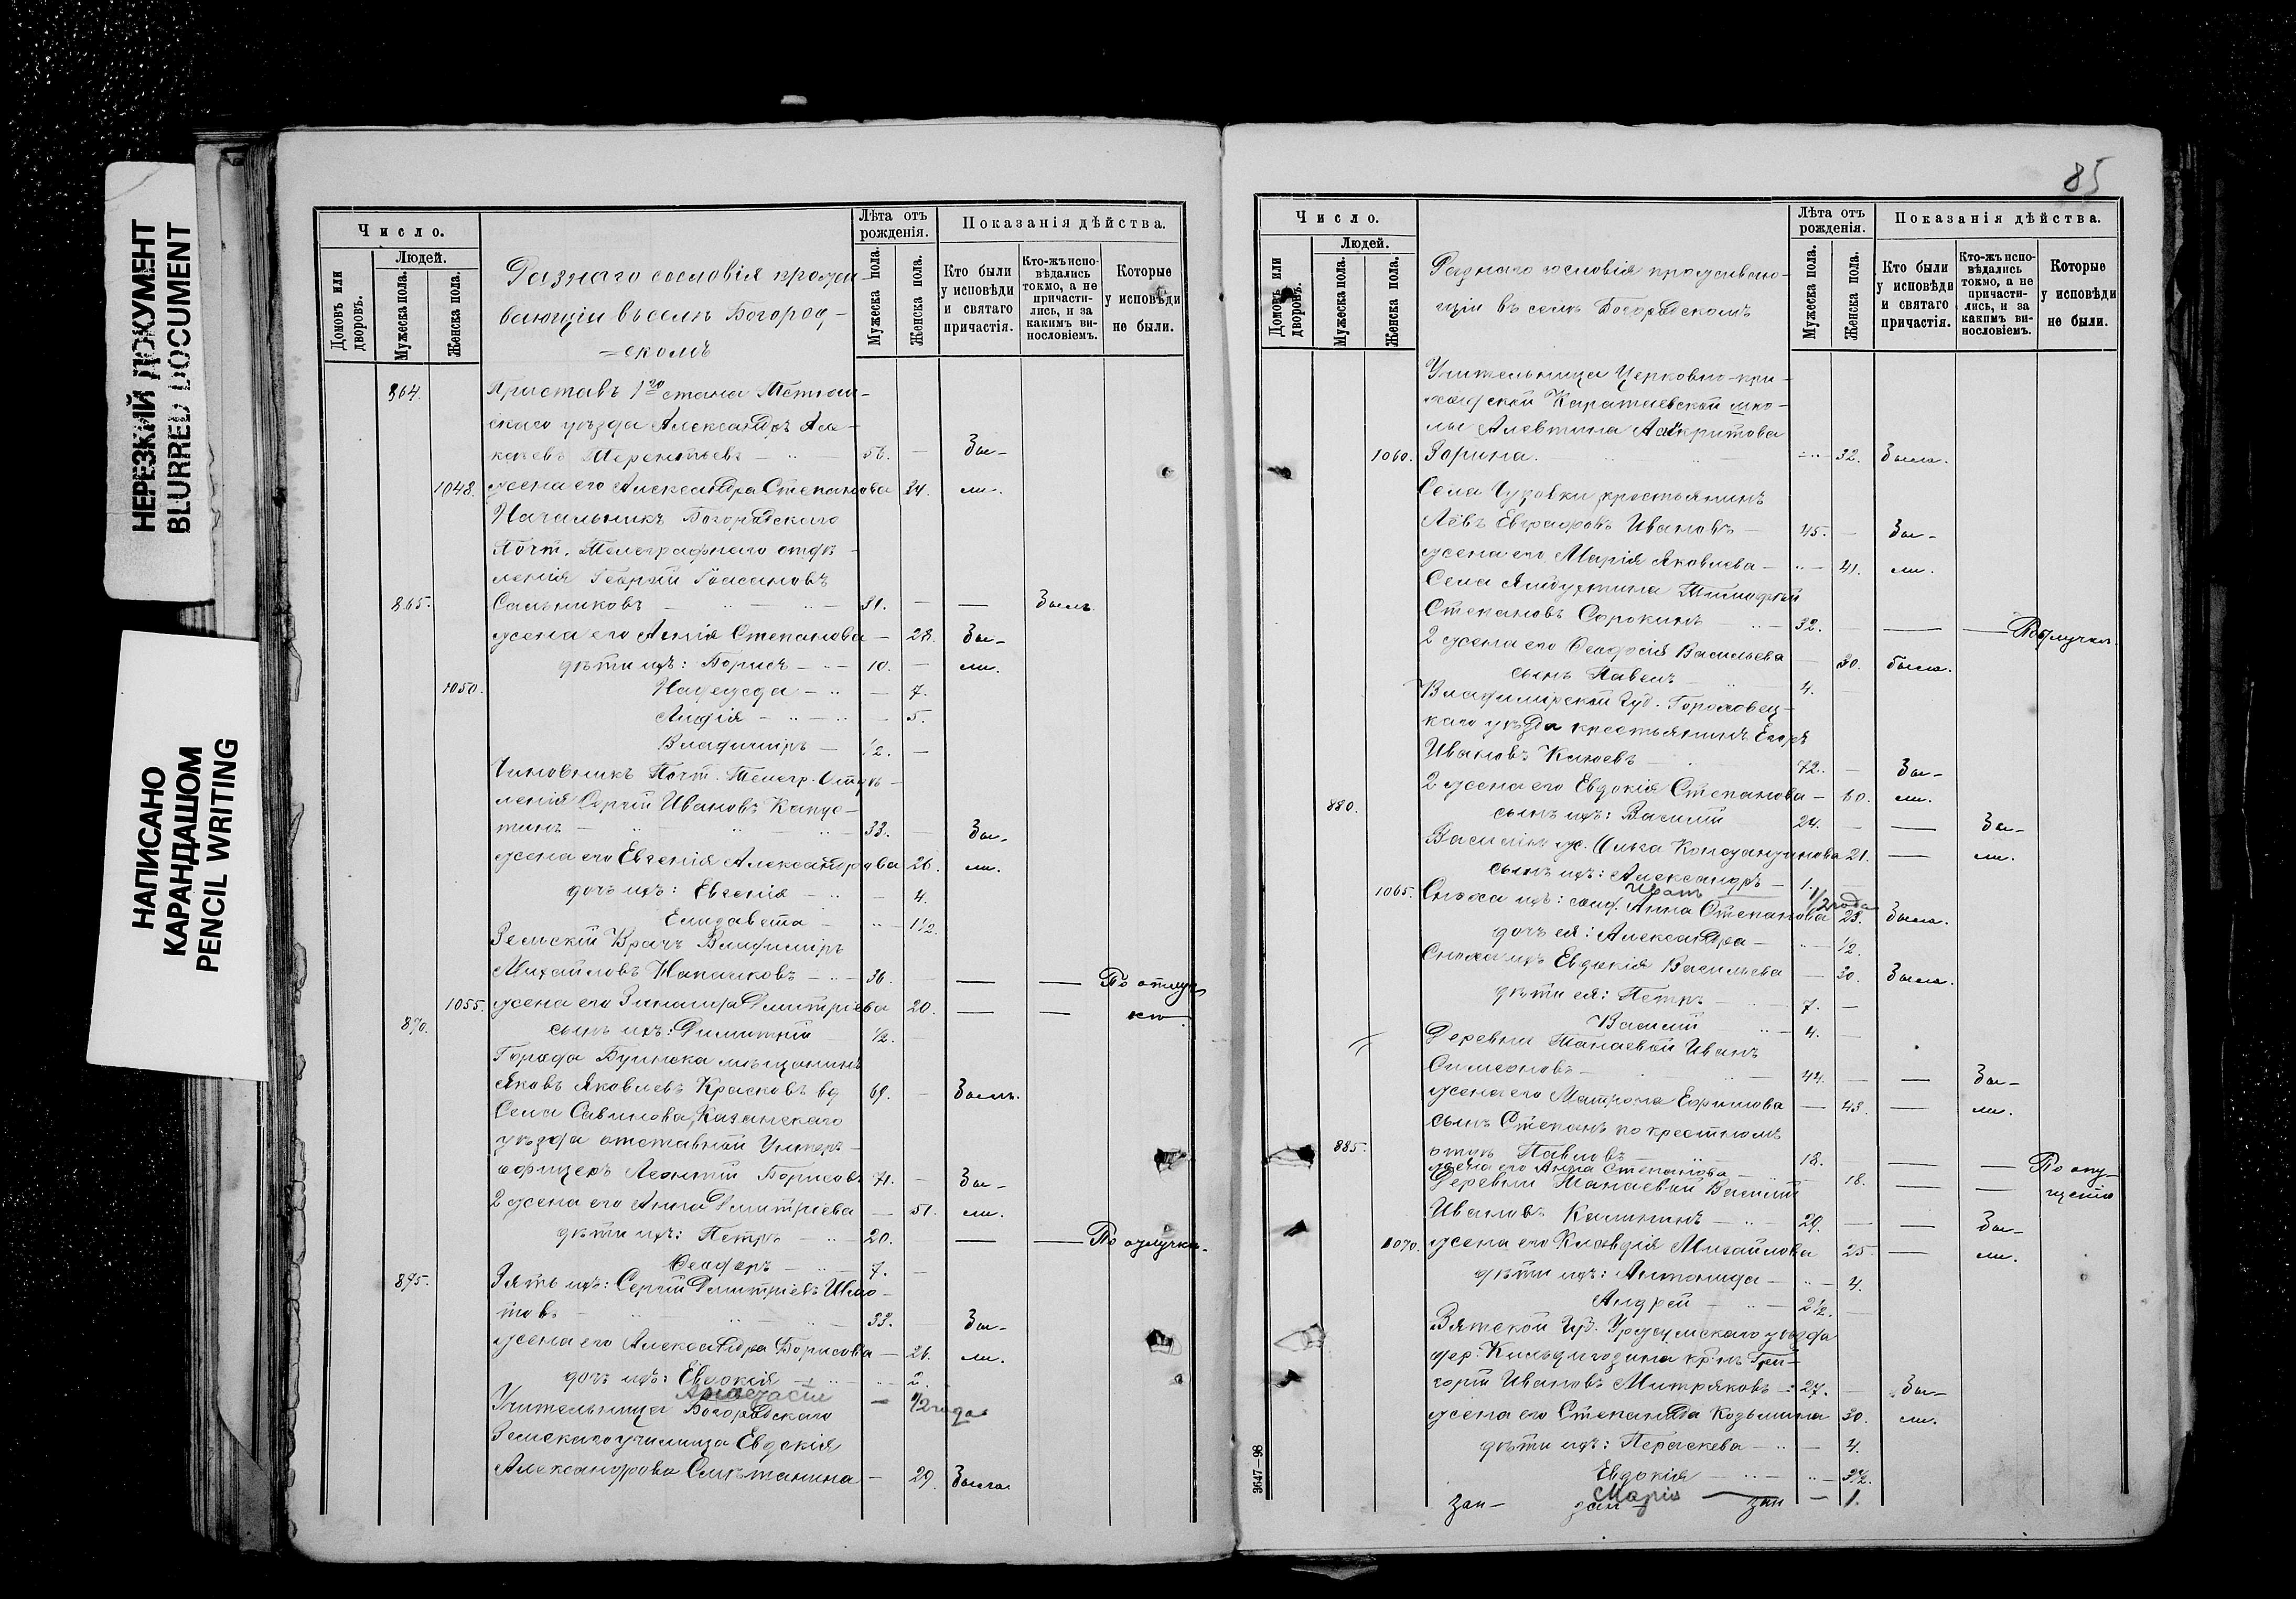 НЕРЕЗКИЙ ДОКУМЕНТ
BLURRED DOCUMENT
НАПИСАНО
КАРАНДАШОМ
PENCIL WRITING
Число.
Людей.
Домовъ или дворовъ.
Мужеска пола.
Женска пола.
Разнаго сословія прожи-
вающіи въ селѣ Богород-
=скомъ
Лѣта отъ рожденія.
Мужеска пола.
Женска пола.
Показанія дѣйства.
Кто были у исповѣди и святаго причастія.
Кто-жъ исповѣдались токмо, а не причастились, и за какимъ винословіемъ.
Которые у исповѣди не были.
864. Приставъ 1го стана
скаго уѣзда Александръ
56. — Бы-
1048. жена его Александра Степанова 34. ли.
Начальникъ Богородскаго
Почт. Телеграфнаго отдѣ-
ленія Георгій
865. Сальниковъ — 31. — — Былъ.
жена его Степанова — 28. Бы-
дѣти ихъ: Борисъ — 10. — ли.
1050. Надежда — — 7.
Лидія — — 5.
Владиміръ — ½. —
Чиновникъ Почт. Телегр. Отдѣ-
ленія Сергій Ивановъ Капус-
тинъ — 33. Бы-
жена его Евгенія Александрова 26. ли.
дочь ихъ: Евгенія — — 4.
Елизавета — — 1½.
Земскій Врачъ Владиміръ
Михайловъ — 36. — — По отлуч
1055. жена его Зинаида Димитріева 20. — — кѣ.
870. сынъ ихъ: Димитрій ½. —
Города Буинска мѣщанинъ
Яковъ Яковлевъ Красковъ вд 69. — Былъ.
Села Савинова, Казанскаго
уѣзда отставной Унтеръ-
офицеръ Леонтій Борисовъ 71. — Бы-
2 жена его Анна Димитріева — 51. ли.
дѣти ихъ: Петръ — 20. — — По отлучкѣ.
Ѳеодоръ — 7. —
875. Зять ихъ: Сергій Димитріевъ
товъ — 33. Бы-
жена его Александра Борисова — 26. ли.
дочь ихъ: Евдокія — 2.
— ½ года
Учительница Богородскаго
Земскаго училища Евдокія
Александрова Смѣтанина — 29. Была.
85
Число.
Людей.
Домовъ или дворовъ.
Мужеска пола.
Женска пола.
Разнаго сословія проживаю-
щіи въ селѣ Богородскомъ
Лѣта отъ рожденія.
Мужеска пола.
Женска пола.
Показанія дѣйства.
Кто были у исповѣди и святаго причастія.
Кто-жъ исповѣдались токмо, а не причастились, и за какимъ винословіемъ.
Которые у исповѣди не были.
Учительница Церковно-при-
ходской Каратаевской шко-
лы Алевтина Асинкритова
1060. Зорина. — 32. Была.
Села Чуровки крестьянинъ
Левъ Евграфовъ Ивановъ — 45. — Бы-
жена его Марія Яковлева — 41. ли.
Села Тимофей
Степановъ Сорокинъ — 32. — — По отлучкѣ.
2 жена его Ѳеодосія Васильева — 30. была.
сынъ Павелъ 4. —
Владимірской Губ. Гороховец-
каго уѣзда крестьянинъ Егоръ
Ивановъ — 72. — Бы-
2 жена его Евдокія Степанова — 60. ли.
880. сынъ ихъ: Василій 24. — — Бы-
Василія ж. Константинова 21. — ли.
сынъ ихъ: Александръ — 1.
Иванъ — 1/2 года
1065. Сноха ихъ: солд. Анна Степанова 28. Была.
дочь ея: Александра — ½.
Сноха ихъ Евдокія Васильева — 30. Была.
дѣти ея: Петръ — 7. —
Василій — 4. —
Деревни Танаевой Иванъ
Симеоновъ — 44. — — Бы-
жена его Матрона Ефимова — 43. — ли.
сынъ Степанъ по крестномъ
885. отцѣ Павловъ — 18. — — По опу-
жена его Анна Степанова — 18. — — щенію
Деревни Танаевой Василій
Ивановъ Калининъ — 29. — — Бы-
1070. жена его Клавдія Михайлова 25. — ли.
дѣти ихъ: Антонида — 4.
Андрей — 2½. —
Вятской Губ. Уржумскаго уѣзда
дер. кр-нъ Гри-
горій Ивановъ Митряковъ — 27. — Бы-
жена его Степанида Козьмина 30. ли.
дѣти ихъ: Параскева — — 4.
Евдокія — 2½.
Марія — — 1.
3647—98